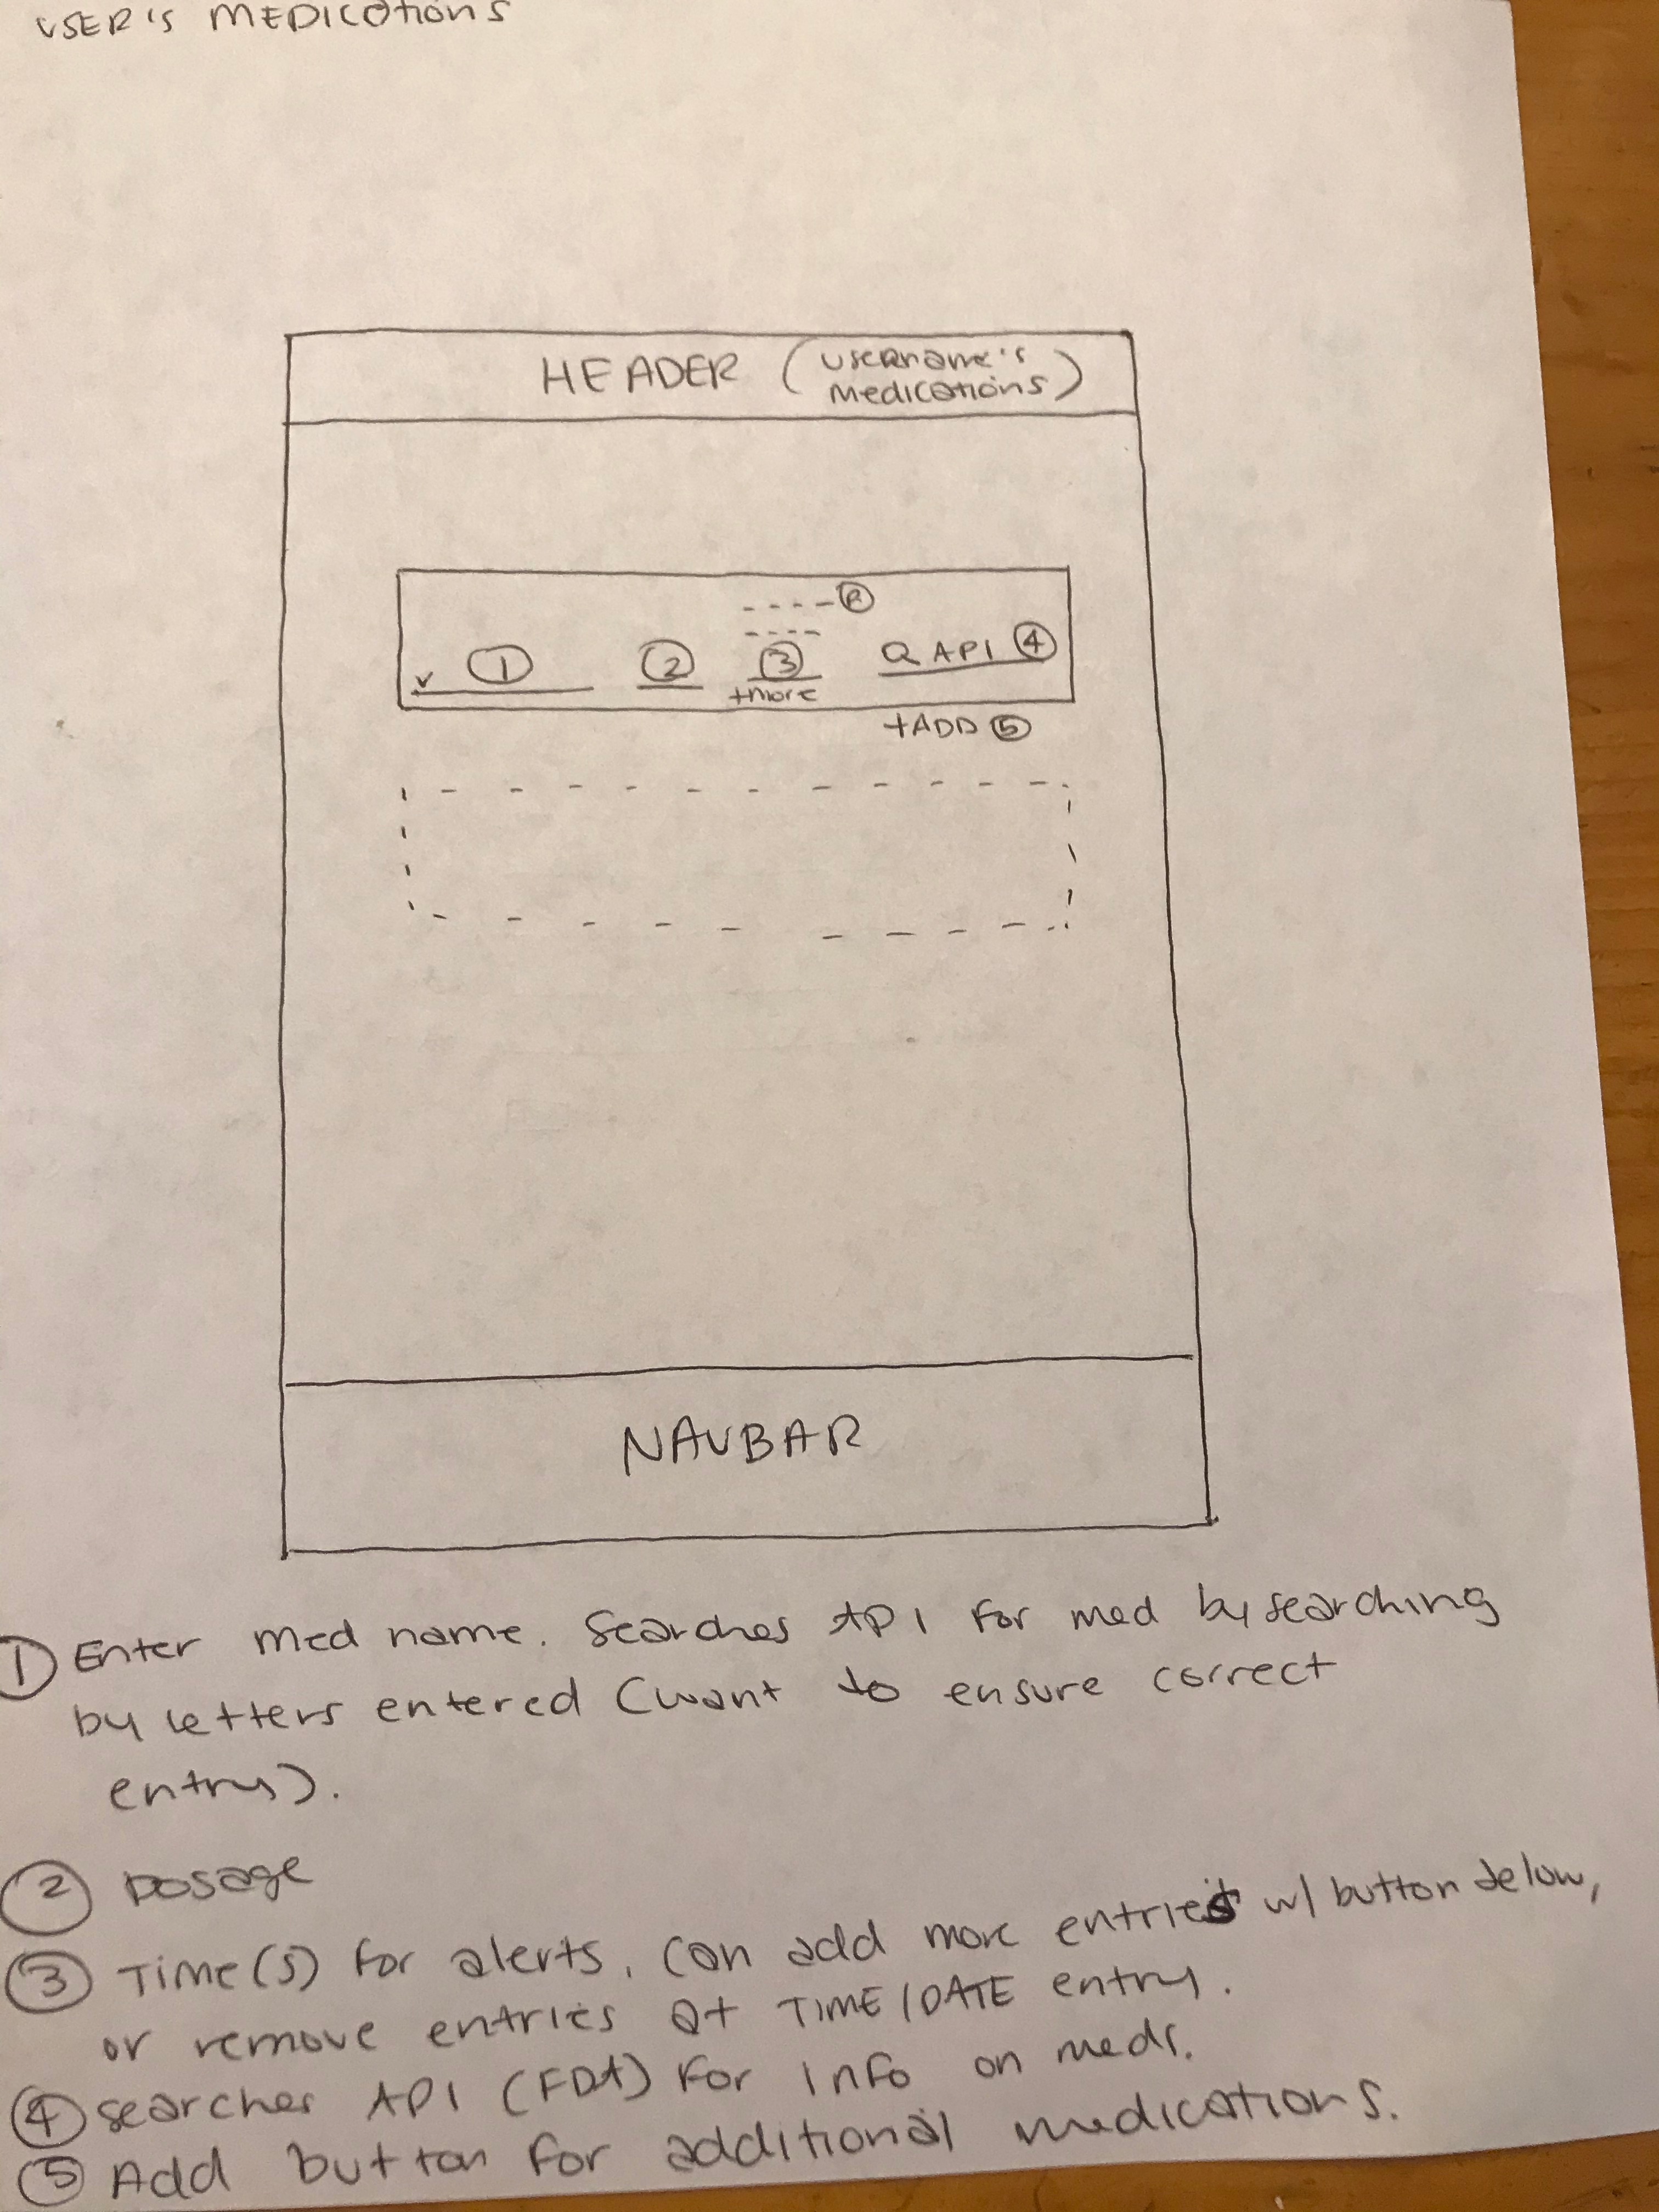 USER'S MEDICATIONS
HEADER (username's
medications)
R
1 2 3 Q API 4
+more
+ADD 5
NAVBAR
1 Enter med name. Searches API for med by searching
by letters entered (want to ensure correct
entry).
2 Dosage
3 Time(s) for alerts. Can add more entries w/ button below,
or remove entries at TIME/DATE entry.
4 searches API (FDA) for info on meds.
5 Add button for additional medications.